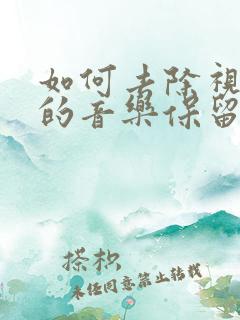 如何去除視
的音樂保留
搽枳
未任同意禁止转载